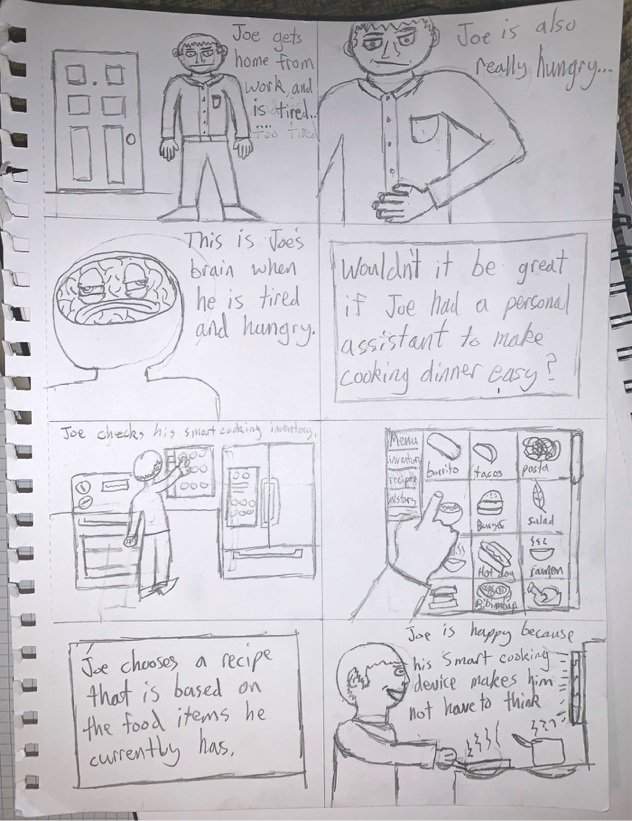 Joe gets
home from
work and
is tired..
Joe is also
really hungry...
This is Joe's
brain when
he is tired
and hungry.
Wouldn't it be great
if Joe had a personal
assistant to make
cooking dinner easy?
Joe checks his smart cooking inventory.
Menu
inventory
recipes
history
burrito
tacos
pasta
Burger
salad
Hot dog
ramen
Bibimbap
Joe chooses a recipe
that is based on
the food items he
currently has.
Joe is happy because
his smart cooking
device makes him
not have to think